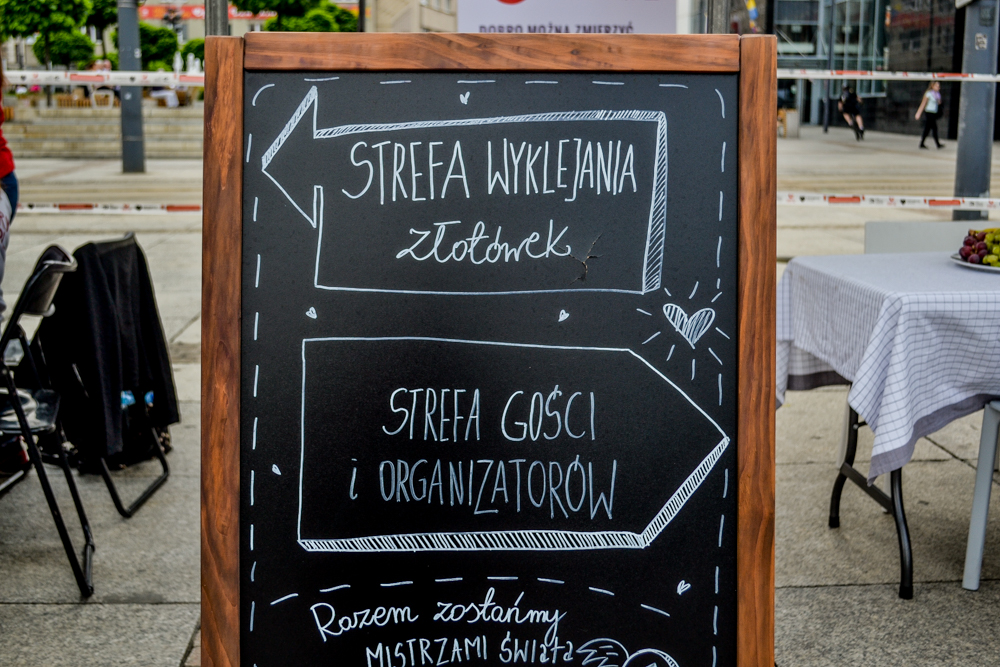 DOBRO MOŻNA ZMIERZYĆ
STREFA WYKLEJANIA
złotówek
STREFA GOŚCI
i ORGANIZATORÓW
Razem zostańmy
MISTRZAMI świata